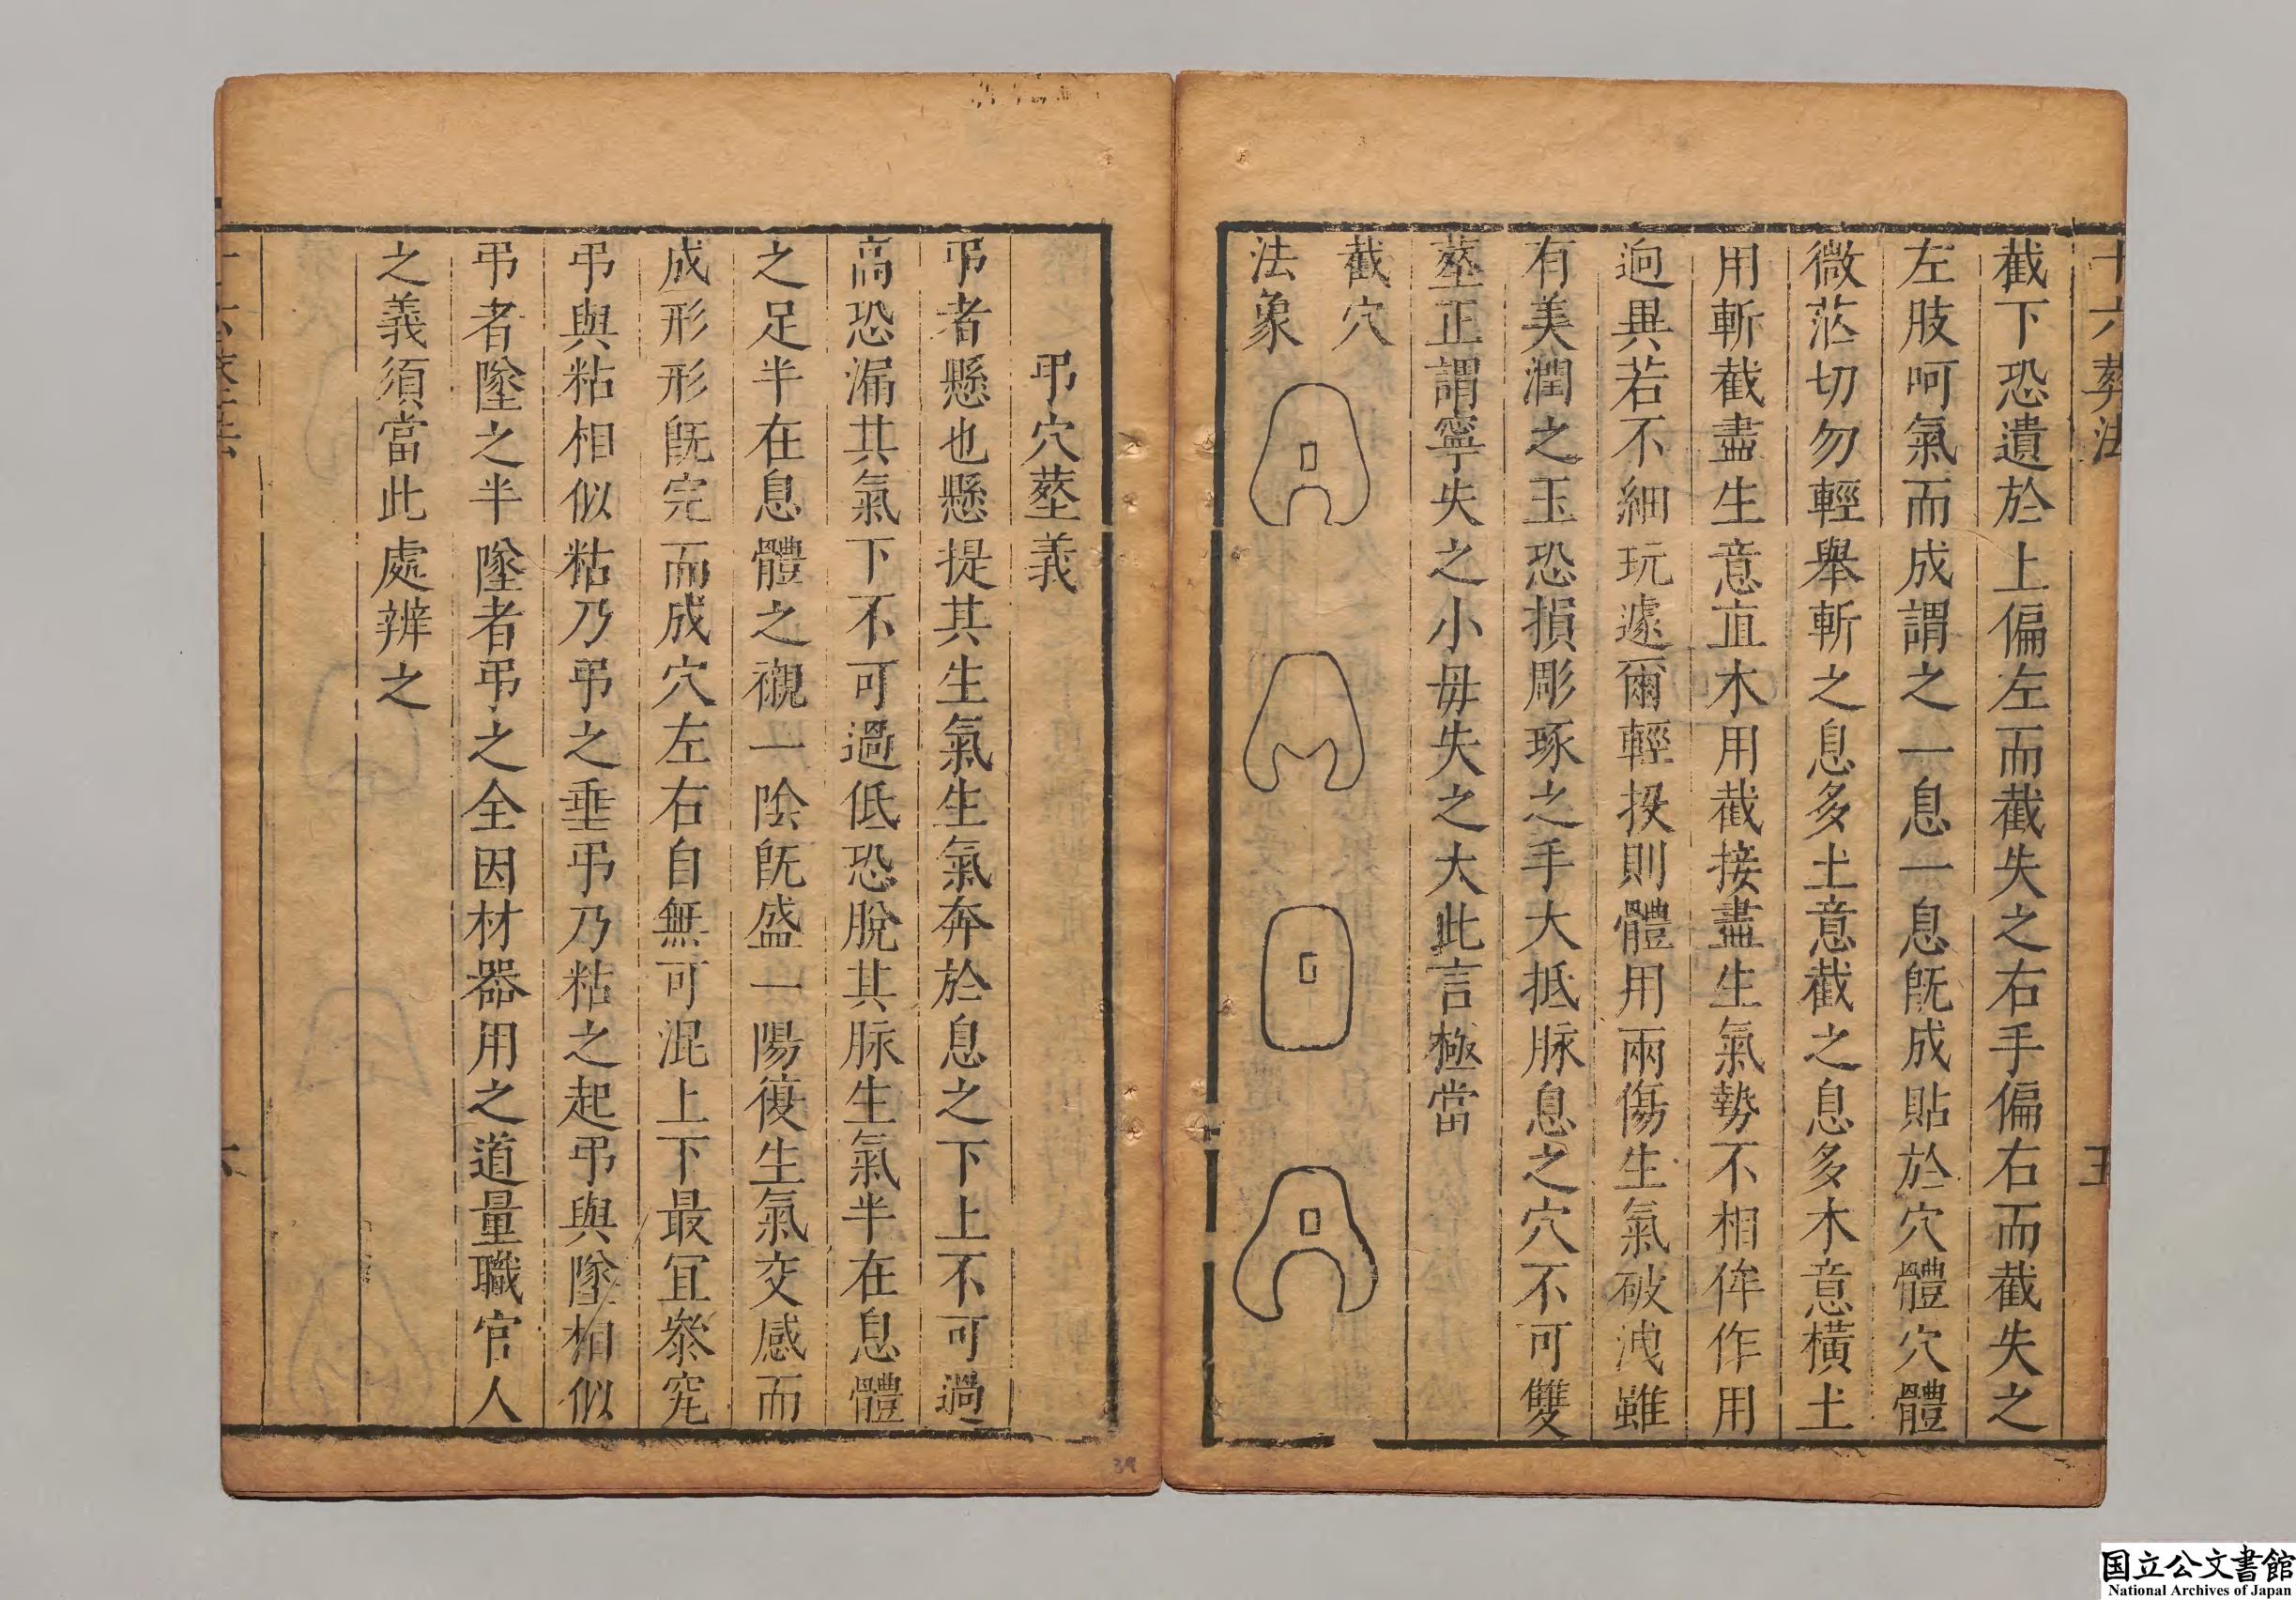 十六葬法
五
截下恐遺於上偏左而截失之右手偏右而截失之
左肢呵氣而成謂之一息一息既成貼於穴體穴體
微茫切勿輕舉斬之息多土意截之息多木意橫土
用斬截盡生意直木用截接盡生氣勢不相侔作用
逈異若不細玩遽爾輕投則體用兩傷生氣破洩雖
有美潤之玉恐損彫琢之手大抵脉息之穴不可雙
塟正謂寧失之小毋失之大此言極當
截穴
法象
弔穴塟義
弔者懸也懸提其生氣生氣奔於息之下上不可過
高恐漏其氣下不可過低恐脫其脉生氣半在息體
之足半在息體之襯一陰既盛一陽復生氣交感而
成形形既完而成穴左右自無可混上下最宜叅究
弔與粘相似粘乃弔之垂弔乃粘之起弔與墜相似
弔者墜之半墜者弔之全因材器用之道量職官人
之義須當此處辨之
39
国立公文書館
National Archives of Japan